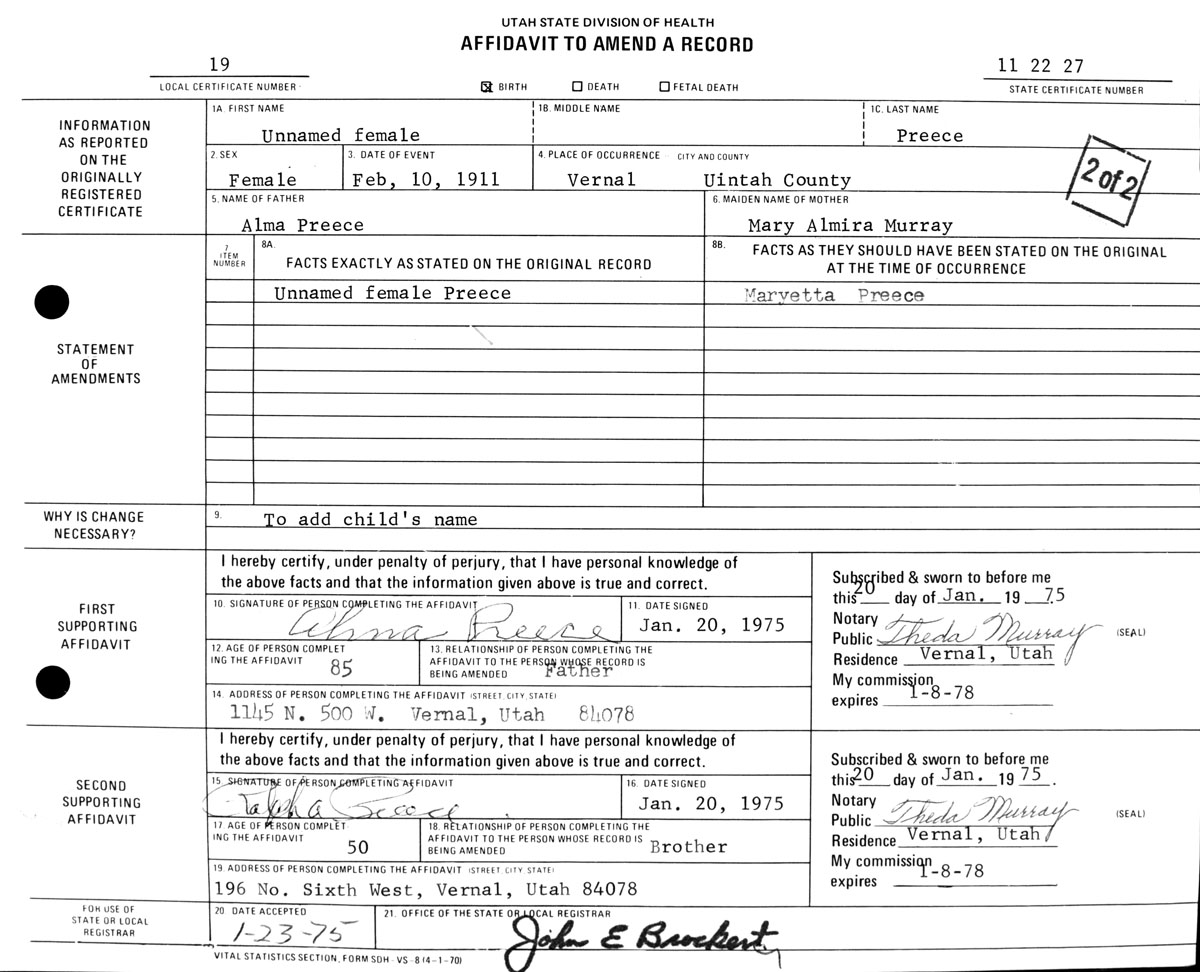 UTAH STATE DIVISION OF HEALTH
AFFIDAVIT TO AMEND A RECORD
19
LOCAL CERTIFICATE NUMBER
☒ BIRTH ☐ DEATH ☐ FETAL DEATH
11 22 27
STATE CERTIFICATE NUMBER
INFORMATION
AS REPORTED
ON THE
ORIGINALLY
REGISTERED
CERTIFICATE
1A. FIRST NAME
Unnamed female
1B. MIDDLE NAME
1C. LAST NAME
Preece
2. SEX
Female
3. DATE OF EVENT
Feb, 10, 1911
4. PLACE OF OCCURRENCE CITY AND COUNTY
Vernal Uintah County
2 of 2
5. NAME OF FATHER
Alma Preece
6. MAIDEN NAME OF MOTHER
Mary Almira Murray
STATEMENT
OF
AMENDMENTS
7
ITEM
NUMBER
8A.
FACTS EXACTLY AS STATED ON THE ORIGINAL RECORD
8B.
FACTS AS THEY SHOULD HAVE BEEN STATED ON THE ORIGINAL
AT THE TIME OF OCCURRENCE
Unnamed female Preece
Maryetta Preece
WHY IS CHANGE
NECESSARY?
9.
To add child's name
FIRST
SUPPORTING
AFFIDAVIT
I hereby certify, under penalty of perjury, that I have personal knowledge of
the above facts and that the information given above is true and correct.
10. SIGNATURE OF PERSON COMPLETING THE AFFIDAVIT
Alma Preece
11. DATE SIGNED
Jan. 20, 1975
12. AGE OF PERSON COMPLET
ING THE AFFIDAVIT
85
13. RELATIONSHIP OF PERSON COMPLETING THE
AFFIDAVIT TO THE PERSON WHOSE RECORD IS
BEING AMENDED
Father
14. ADDRESS OF PERSON COMPLETING THE AFFIDAVIT (STREET, CITY, STATE)
1145 N. 500 W. Vernal, Utah 84078
Subscribed & sworn to before me
this 20 day of Jan. 19 75
Notary
Public Theda Murray (SEAL)
Residence Vernal, Utah
My commission
expires 1-8-78
SECOND
SUPPORTING
AFFIDAVIT
I hereby certify, under penalty of perjury, that I have personal knowledge of
the above facts and that the information given above is true and correct.
15. SIGNATURE OF PERSON COMPLETING AFFIDAVIT
Preece
16. DATE SIGNED
Jan. 20, 1975
17. AGE OF PERSON COMPLET
ING THE AFFIDAVIT
50
18. RELATIONSHIP OF PERSON COMPLETING THE
AFFIDAVIT TO THE PERSON WHOSE RECORD IS
BEING AMENDED
Brother
19. ADDRESS OF PERSON COMPLETING THE AFFIDAVIT (STREET CITY STATE)
196 No. Sixth West, Vernal, Utah 84078
Subscribed & sworn to before me
this 20 day of Jan. 19 75.
Notary
Public Theda Murray (SEAL)
Residence Vernal, Utah
My commission
expires 1-8-78
FOR USE OF
STATE OR LOCAL
REGISTRAR
20. DATE ACCEPTED
1-23-75
21. OFFICE OF THE STATE OR LOCAL REGISTRAR
John E Brockert
VITAL STATISTICS SECTION, FORM SDH - VS - 8 (4-1-70)